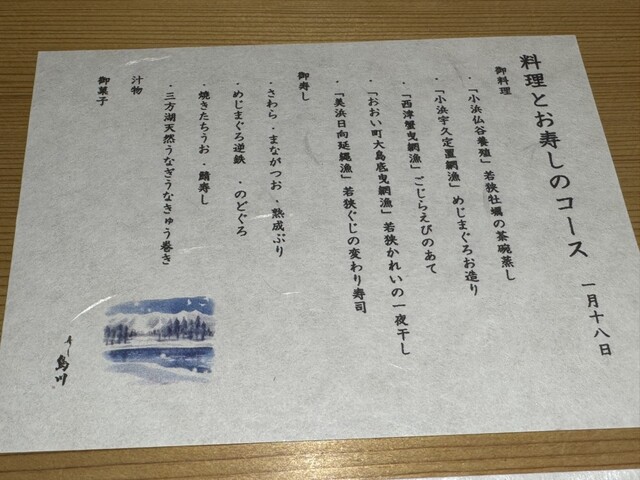 料理とお寿しのコース 一月十八日
御料理
・「小浜仏谷養殖」若狭牡蠣の茶碗蒸し
・「小浜宇久定置網漁」めじまぐろお造り
・「西津蟹曳網漁」ごじらえびのあて
・「おおい町大島底曳網漁」若狭かれいの一夜干し
・「美浜日向延縄漁」若狭ぐじの変わり寿司
御寿し
・さわら・まながつお・熟成ぶり
・めじまぐろ逆鉄 ・のどぐろ
焼きたちうお・鯖寿し
・三方湖天然うなぎうなきゅう巻き
汁物
御菓子